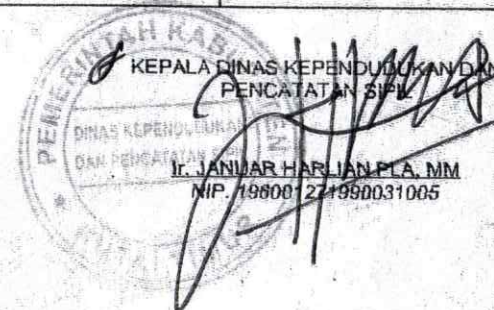 KEPALA DINAS KEPENDUDUKAN DAN
PENCATATAN SIPIL
Ir. JANUAR HARLIAN PLA, MM
NIP. 196001271990031005
PEMERINTAH KABUPATEN
DINAS KEPENDUDUKAN
DAN PENCATATAN